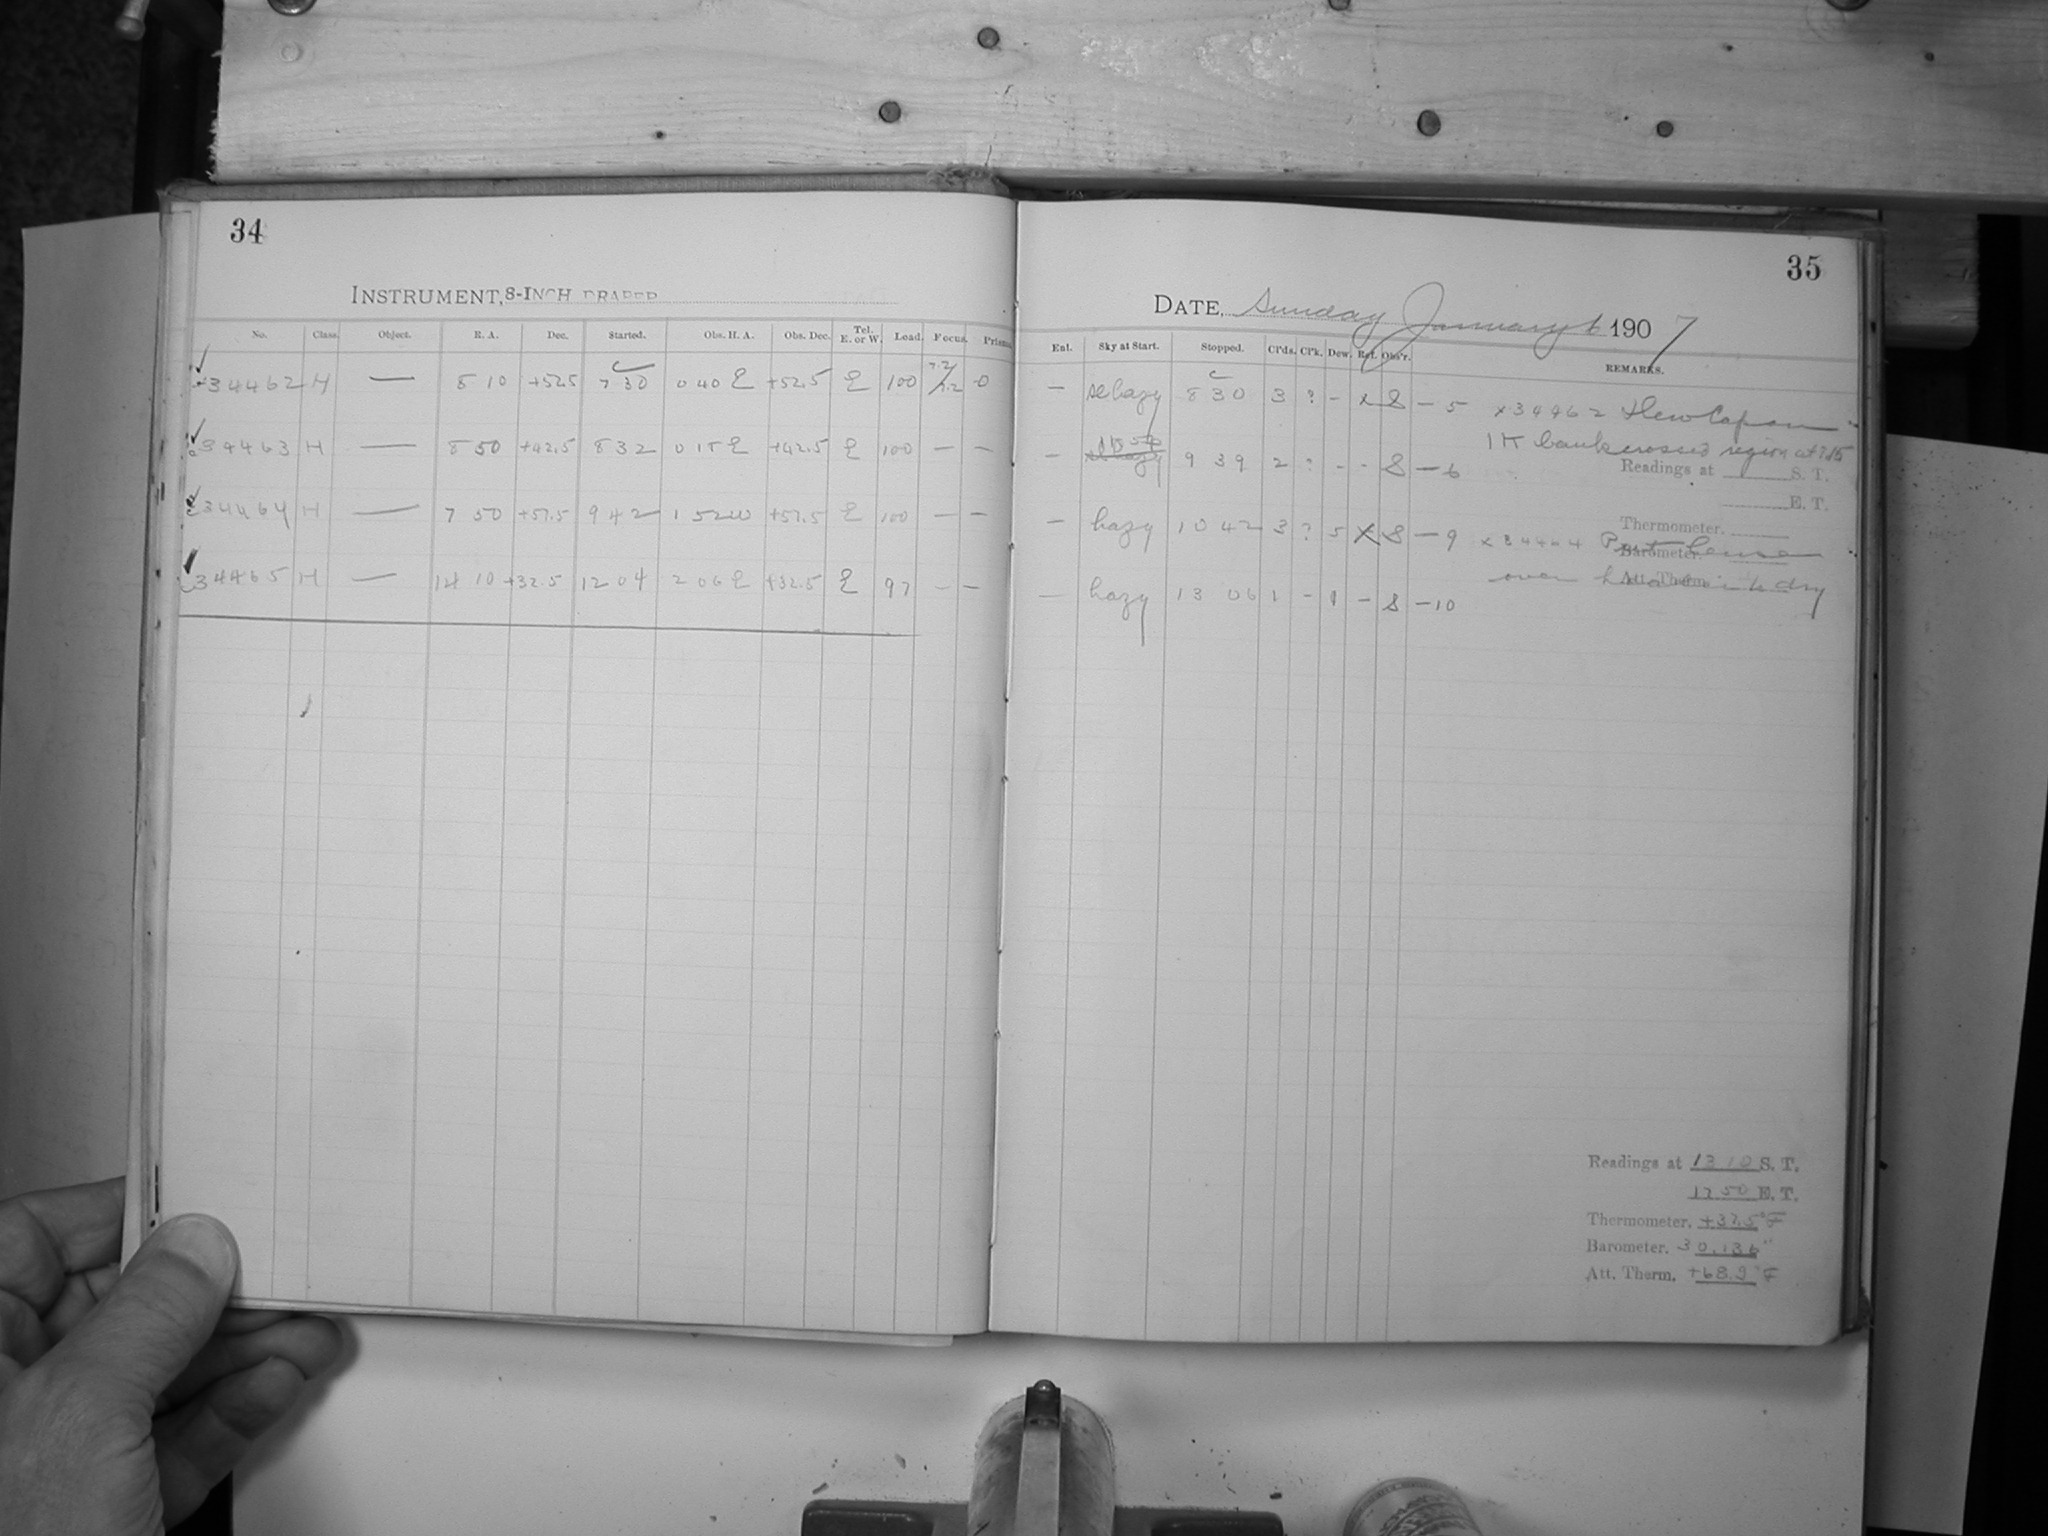 34
INSTRUMENT, 8-INCH DRAPER
No. Class. Object. R. A. Dec. Started. Obs. H. A. Obs. Dec. Tel. E. or W. Load. Focus. Prisms.
34462 H — 8 10 +52.5 7 30 0 40 E +52.5 E 100 7.2/7.2 0
34463 H — 8 50 +42.5 8 32 0 18 E +42.5 E 100 — —
34464 H — 7 50 +57.5 9 42 1 52 W +57.5 E 100 — —
34465 H — 14 10 +32.5 12 04 2 06 E +32.5 E 97 — —
35
DATE, Sunday January 6 1907
Ent. Sky at Start. Stopped. Cl'ds. Cl'k. Dew. Ref. Obs'r. REMARKS.
— hazy 8 30 3 ? - x S — 5 x 34462 New Cap on
— hazy 9 39 2 ? - - S — 6 bank crossed region at
Readings at S. T.
E. T.
— hazy 10 42 3 ? 5 X S — 9 x 34464 Put
Thermometer.
Barometer.
— hazy 13 06 1 - 1 - S — 10 over to dry
Att. Therm.
Readings at 13 10 S. T.
E. T.
Thermometer. +37.5 °F
Barometer. 30.136"
Att. Therm. +68.9 °F